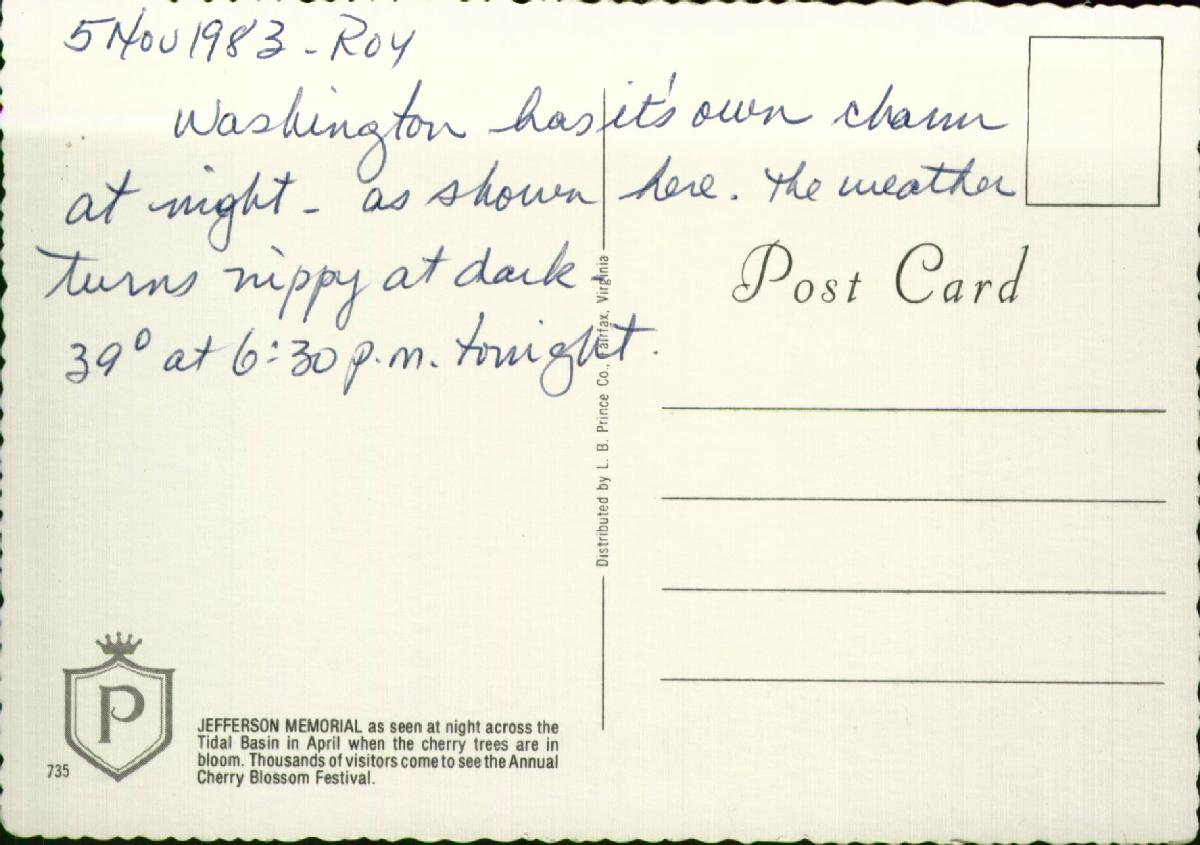 5 Nov 1983 - Roy
Washington has it's own charm
at night - as shown here. The weather
turns nippy at dark -
39° at 6:30 p.m. tonight.
Post Card
Distributed by L. B. Prince Co., Fairfax, Virginia
P
735
JEFFERSON MEMORIAL as seen at night across the
Tidal Basin in April when the cherry trees are in
bloom. Thousands of visitors come to see the Annual
Cherry Blossom Festival.